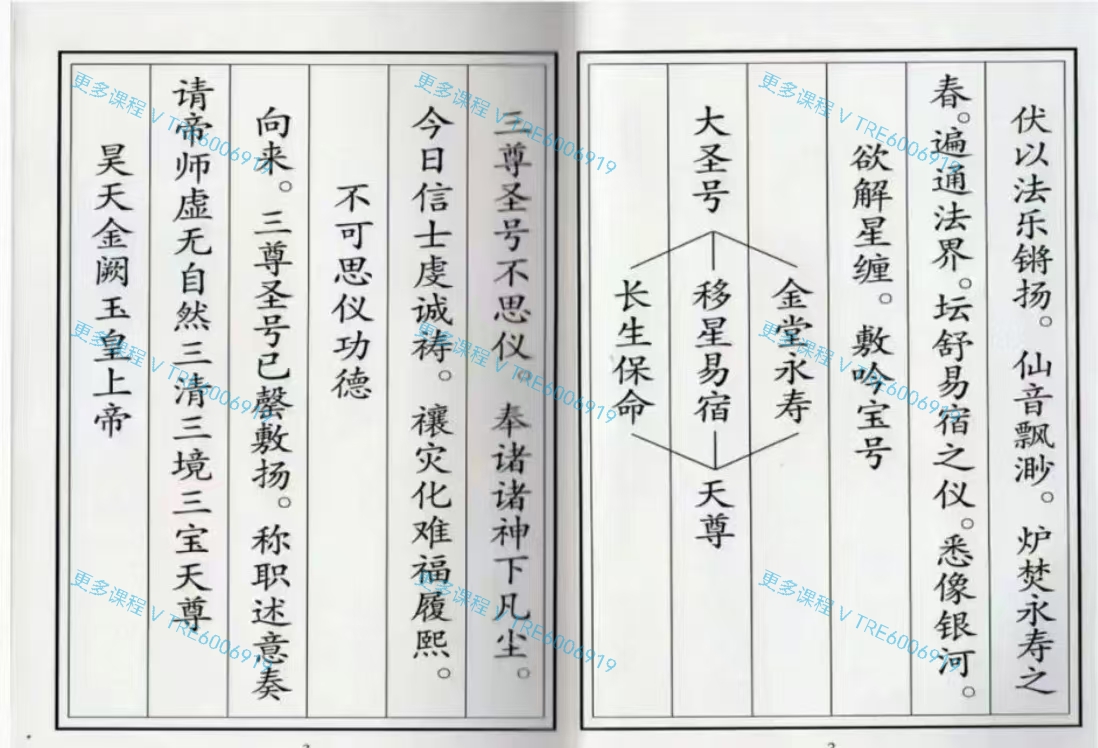 伏以法乐锵扬。仙音飘渺。炉焚永寿之
春。遍通法界。坛舒易宿之仪。悉像银河。
欲解星缠。敷吟宝号
金堂永寿
大圣号 移星易宿 天尊
长生保命
三尊圣号不思仪。奉诸诸神下凡尘。
今日信士虔诚祷。禳灾化难福履熙。
不可思仪功德
向来。三尊圣号已罄敷扬。称职述意奏
请帝师虚无自然三清三境三宝天尊
昊天金阙玉皇上帝
更多课程 V TRE6006919
更多课程 V TRE6006919
更多课程 V TRE6006919
更多课程 V TRE6006919
更多课程 V TRE6006919
更多课程 V TRE6006919
更多课程 V TRE6006919
更多课程 V TRE6006919
更多课程 V TRE6006919